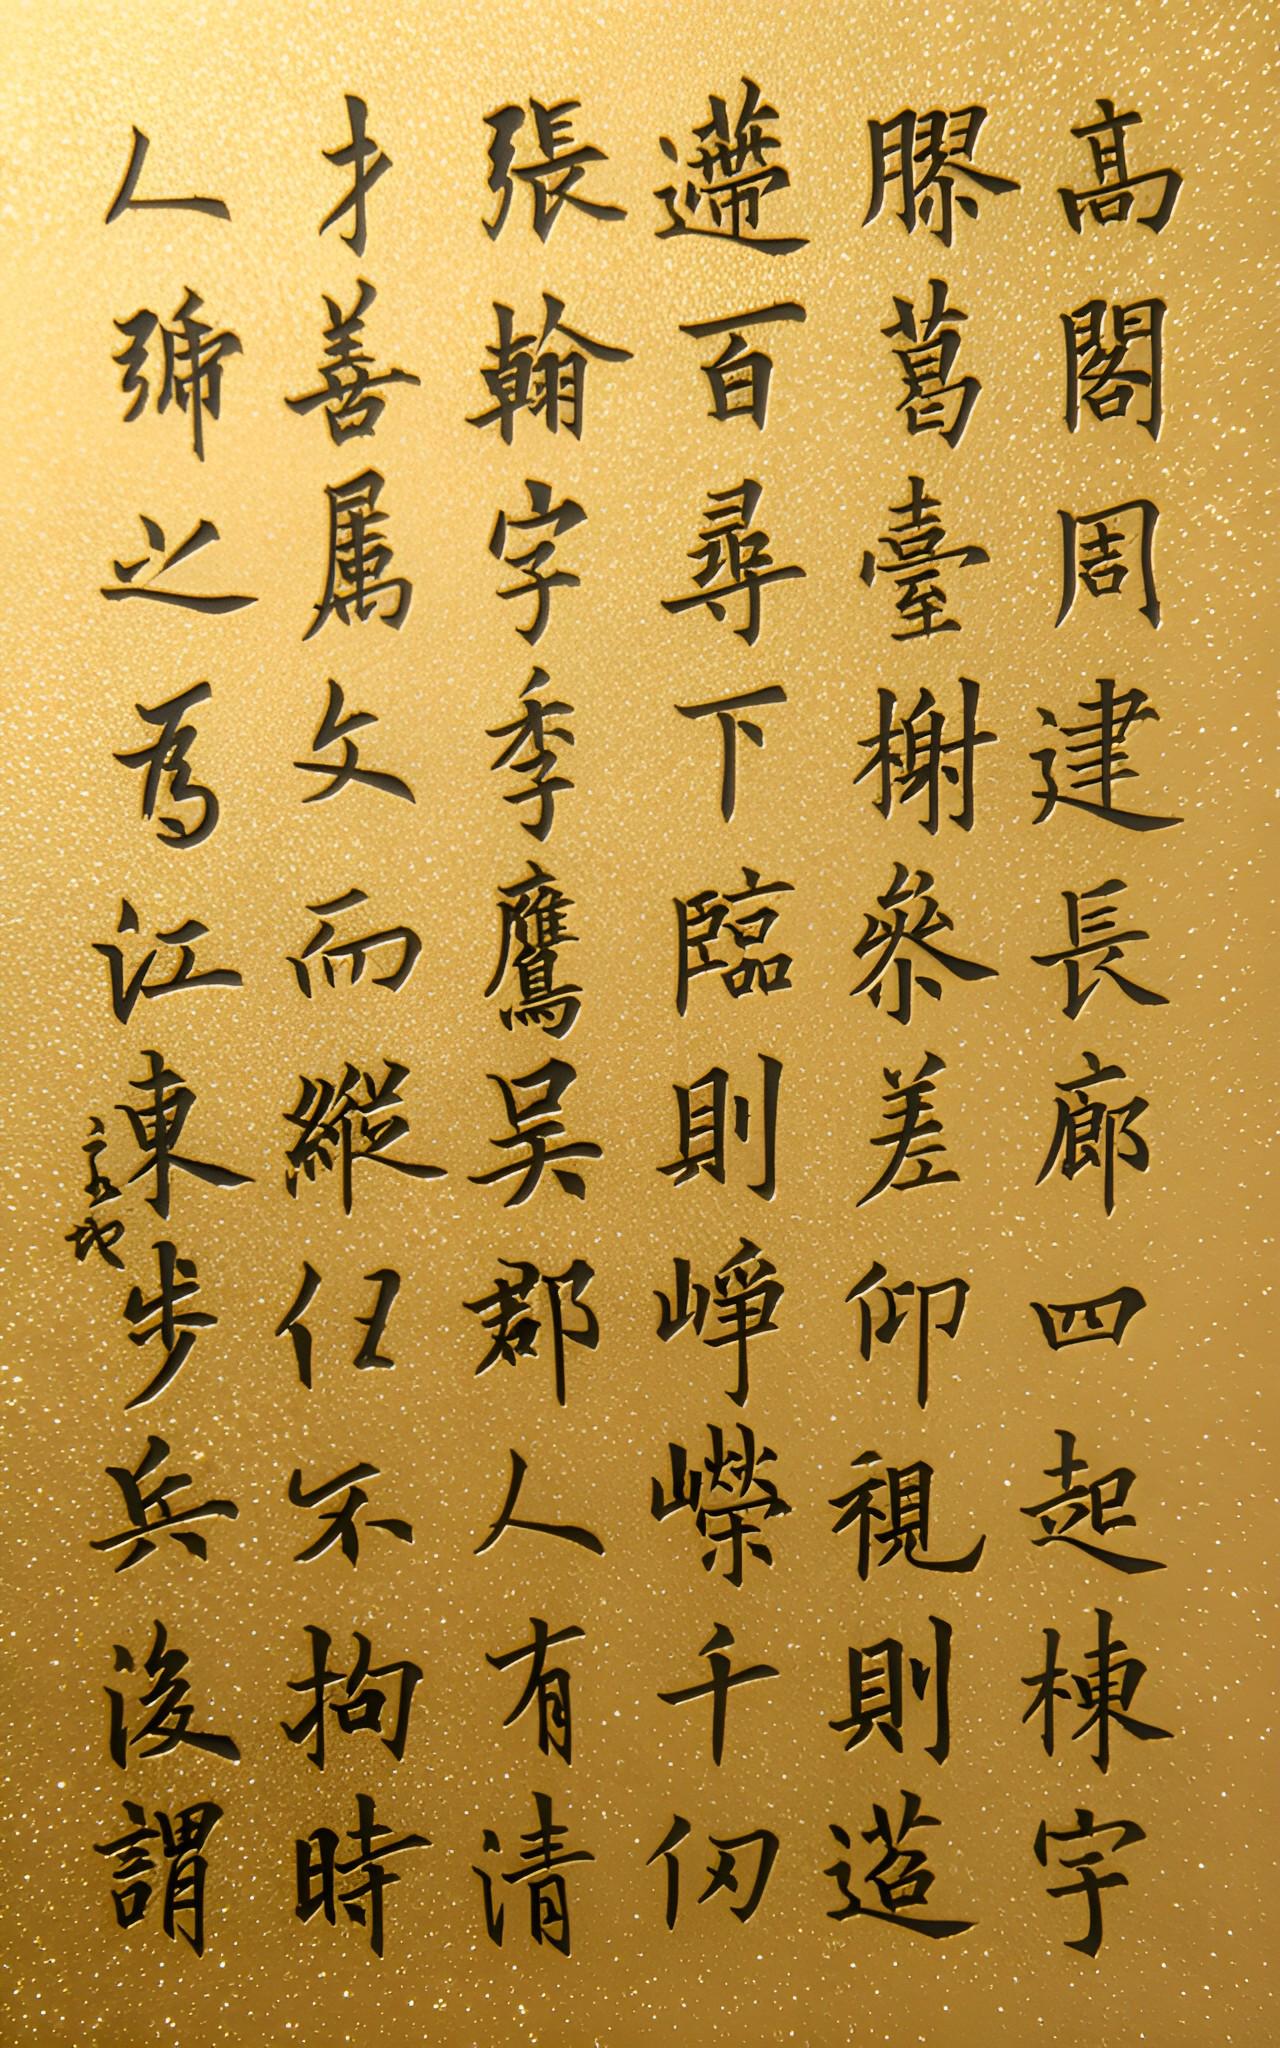 高閣周建長廊四起棟宇
膠葛臺榭參差仰視則迢
遰百尋下臨則崢嶸千仞
張翰字季鷹吳郡人有清
才善属文而縱任不拘時
人號之為江東步兵後謂